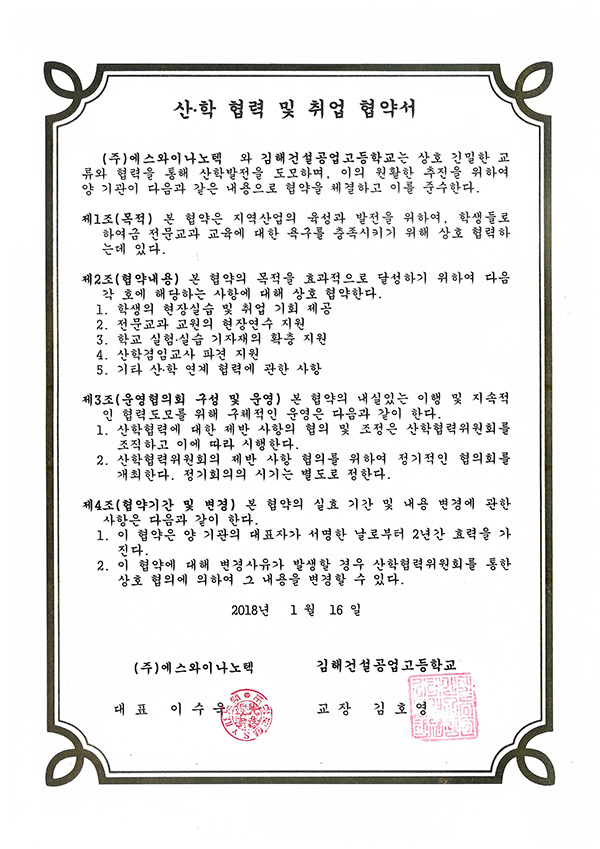 산·학 협력 및 취업 협약서
(주)에스와이나노텍 와 김해건설공업고등학교는 상호 긴밀한 교
류와 협력을 통해 산학발전을 도모하며, 이의 원활한 추진을 위하여
양 기관이 다음과 같은 내용으로 협약을 체결하고 이를 준수한다.
제1조(목적) 본 협약은 지역산업의 육성과 발전을 위하여, 학생들로
하여금 전문교과 교육에 대한 욕구를 충족시키기 위해 상호 협력하
는데 있다.
제2조(협약내용) 본 협약의 목적을 효과적으로 달성하기 위하여 다음
각 호에 해당하는 사항에 대해 상호 협약한다.
1. 학생의 현장실습 및 취업 기회 제공
2. 전문교과 교원의 현장연수 지원
3. 학교 실험·실습 기자재의 확충 지원
4. 산학겸임교사 파견 지원
5. 기타 산·학 연계 협력에 관한 사항
제3조(운영협의회 구성 및 운영) 본 협약의 내실있는 이행 및 지속적
인 협력도모를 위해 구체적인 운영은 다음과 같이 한다.
1. 산학협력에 대한 제반 사항의 협의 및 조정은 산학협력위원회를
조직하고 이에 따라 시행한다.
2. 산학협력위원회의 제반 사항 협의를 위하여 정기적인 협의회를
개최한다. 정기회의의 시기는 별도로 정한다.
제4조(협약기간 및 변경) 본 협약의 실효 기간 및 내용 변경에 관한
사항은 다음과 같이 한다.
1. 이 협약은 양 기관의 대표자가 서명한 날로부터 2년간 효력을 가
진다.
2. 이 협약에 대해 변경사유가 발생할 경우 산학협력위원회를 통한
상호 협의에 의하여 그 내용을 변경할 수 있다.
2018년 1월 16일
(주)에스와이나노텍 김해건설공업고등학교
대표 이수욱 교장 김호영